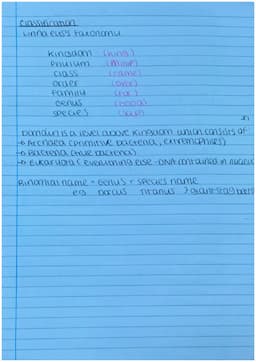 Classification
Linnaeus's taxonomy
Kingdom (King)
Phylum
Class (came)
Order (over)
Family (for)
Genus (good)
Species (soup)
Domain is a level above kingdom which consists of
→ Archaea (primitive bacteria, extremophiles)
→ Bacteria (true bacteria)
→ Eukaryota (everything else - DNA contained in nucleus
Binomial name = Genus + species name
eg Dorcus Titanus → giant stag beetle